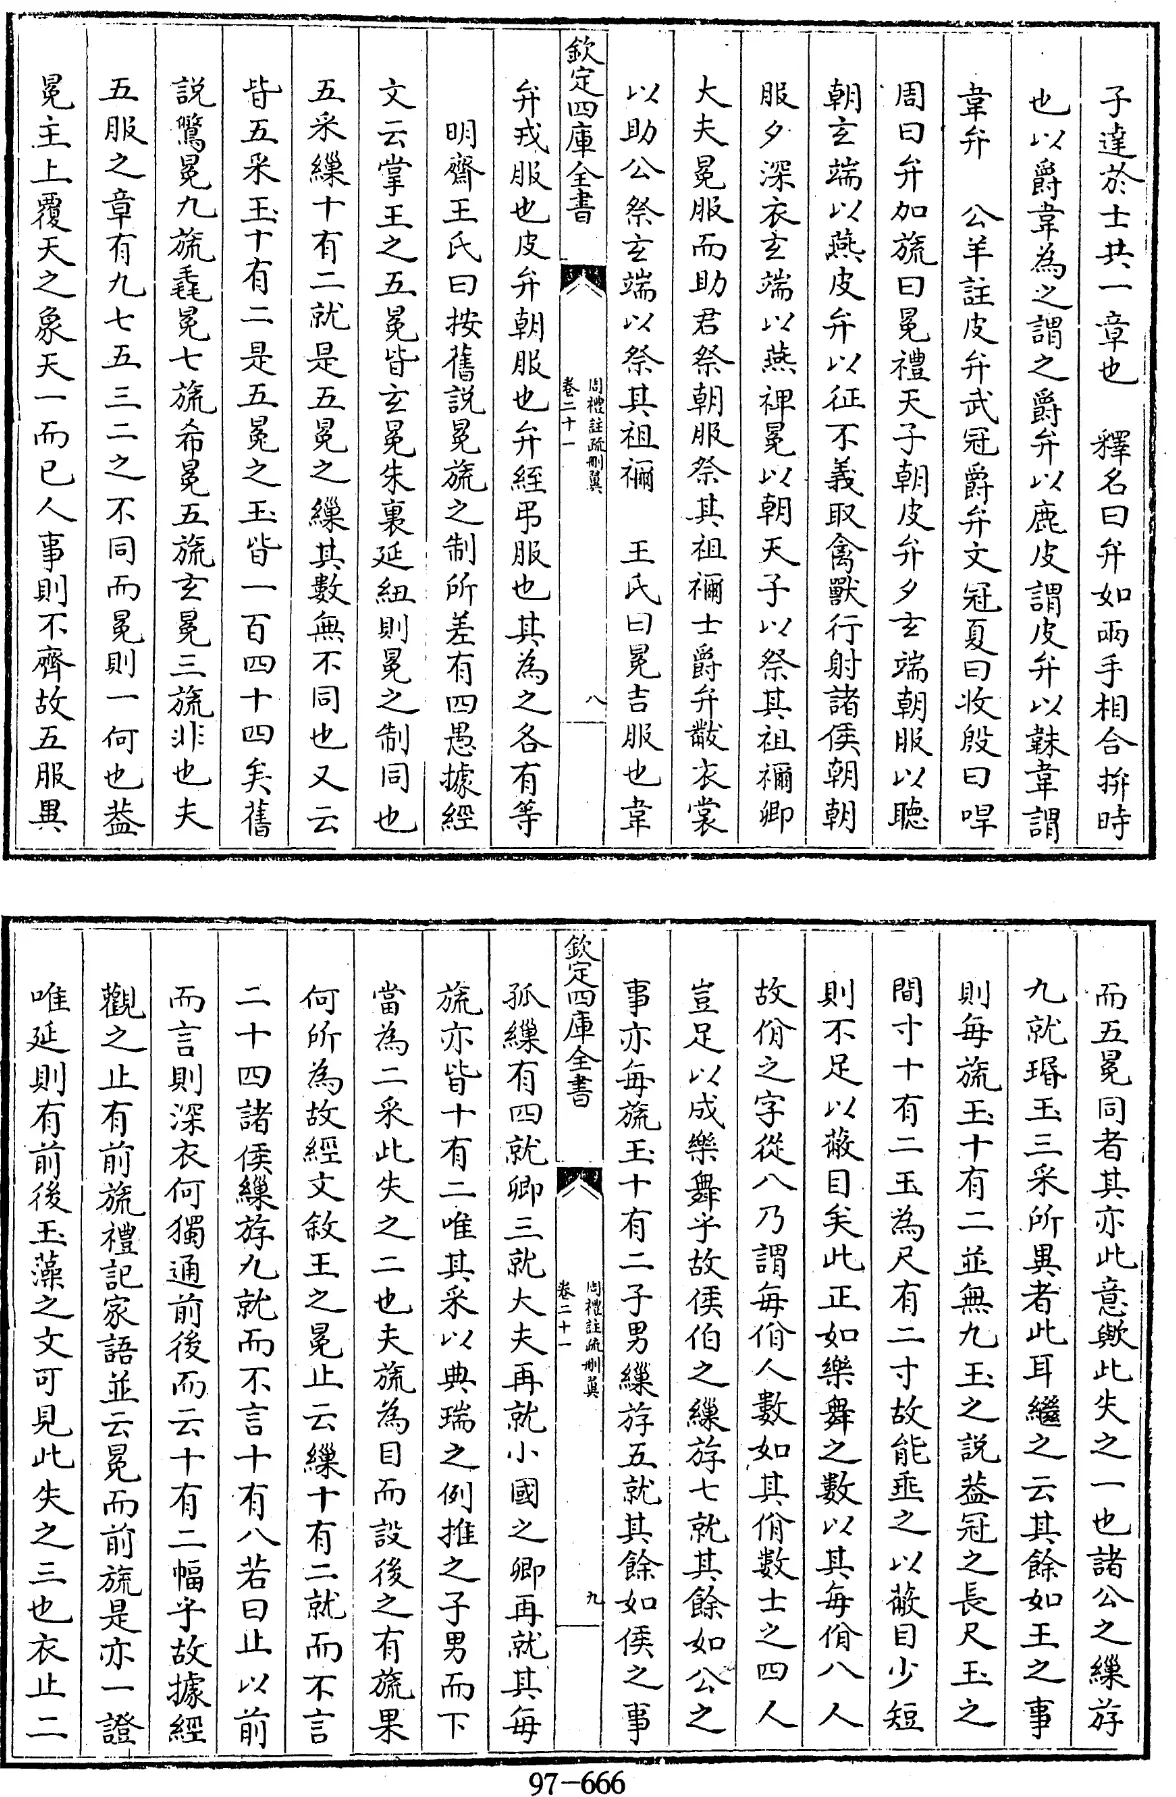 子達於士共一章也　釋名曰弁如兩手相合拚時
也以爵韋為之謂之爵弁以鹿皮謂皮弁以韎韋謂
韋弁　公羊註皮弁武冠爵弁文冠夏曰收殷曰哻
周曰弁加旒曰冕禮天子朝皮弁夕玄端朝服以聽
朝玄端以燕皮弁以征不義取禽獸行射諸侯朝朝
服夕深衣玄端以燕裨冕以朝天子以祭其祖禰卿
大夫冕服而助君祭朝服祭其祖禰士爵弁黻衣裳
以助公祭玄端以祭其祖禰　王氏曰冕吉服也韋
欽定四庫全書　周禮註疏刪翼卷二十一　八
弁戎服也皮弁朝服也弁絰弔服也其為之各有等
明齋王氏曰按舊説冕旒之制所差有四愚據經
文云掌王之五冕皆玄冕朱裏延紐則冕之制同也
五采繅十有二就是五冕之繅其數無不同也又云
皆五采玉十有二是五冕之玉皆一百四十四矣舊
説鷩冕九旒毳冕七旒希冕五旒玄冕三旒非也夫
五服之章有九七五三二之不同而冕則一何也葢
冕主上覆天之象天一而已人事則不齊故五服異
而五冕同者其亦此意歟此失之一也諸公之繅斿
九就瑉玉三采所異者此耳繼之云其餘如王之事
則每旒玉十有二並無九玉之説葢冠之長尺玉之
間寸十有二玉為尺有二寸故能垂之以蔽目少短
則不足以蔽目矣此正如樂舞之數以其每佾八人
故佾之字從八乃謂每佾人數如其佾數士之四人
豈足以成樂舞乎故侯伯之繅斿七就其餘如公之
事亦每旒玉十有二子男繅斿五就其餘如侯之事
欽定四庫全書　周禮註疏刪翼卷二十一　九
孤繅有四就卿三就大夫再就小國之卿再就其每
旒亦皆十有二唯其采以典瑞之例推之子男而下
當為二采此失之二也夫旒為目而設後之有旒果
何所為故經文敘王之冕止云繅十有二就而不言
二十四諸侯繅斿九就而不言十有八若曰止以前
而言則深衣何獨通前後而云十有二幅乎故據經
觀之止有前旒禮記家語並云冕而前旒是亦一證
唯延則有前後玉藻之文可見此失之三也衣止二
97-666